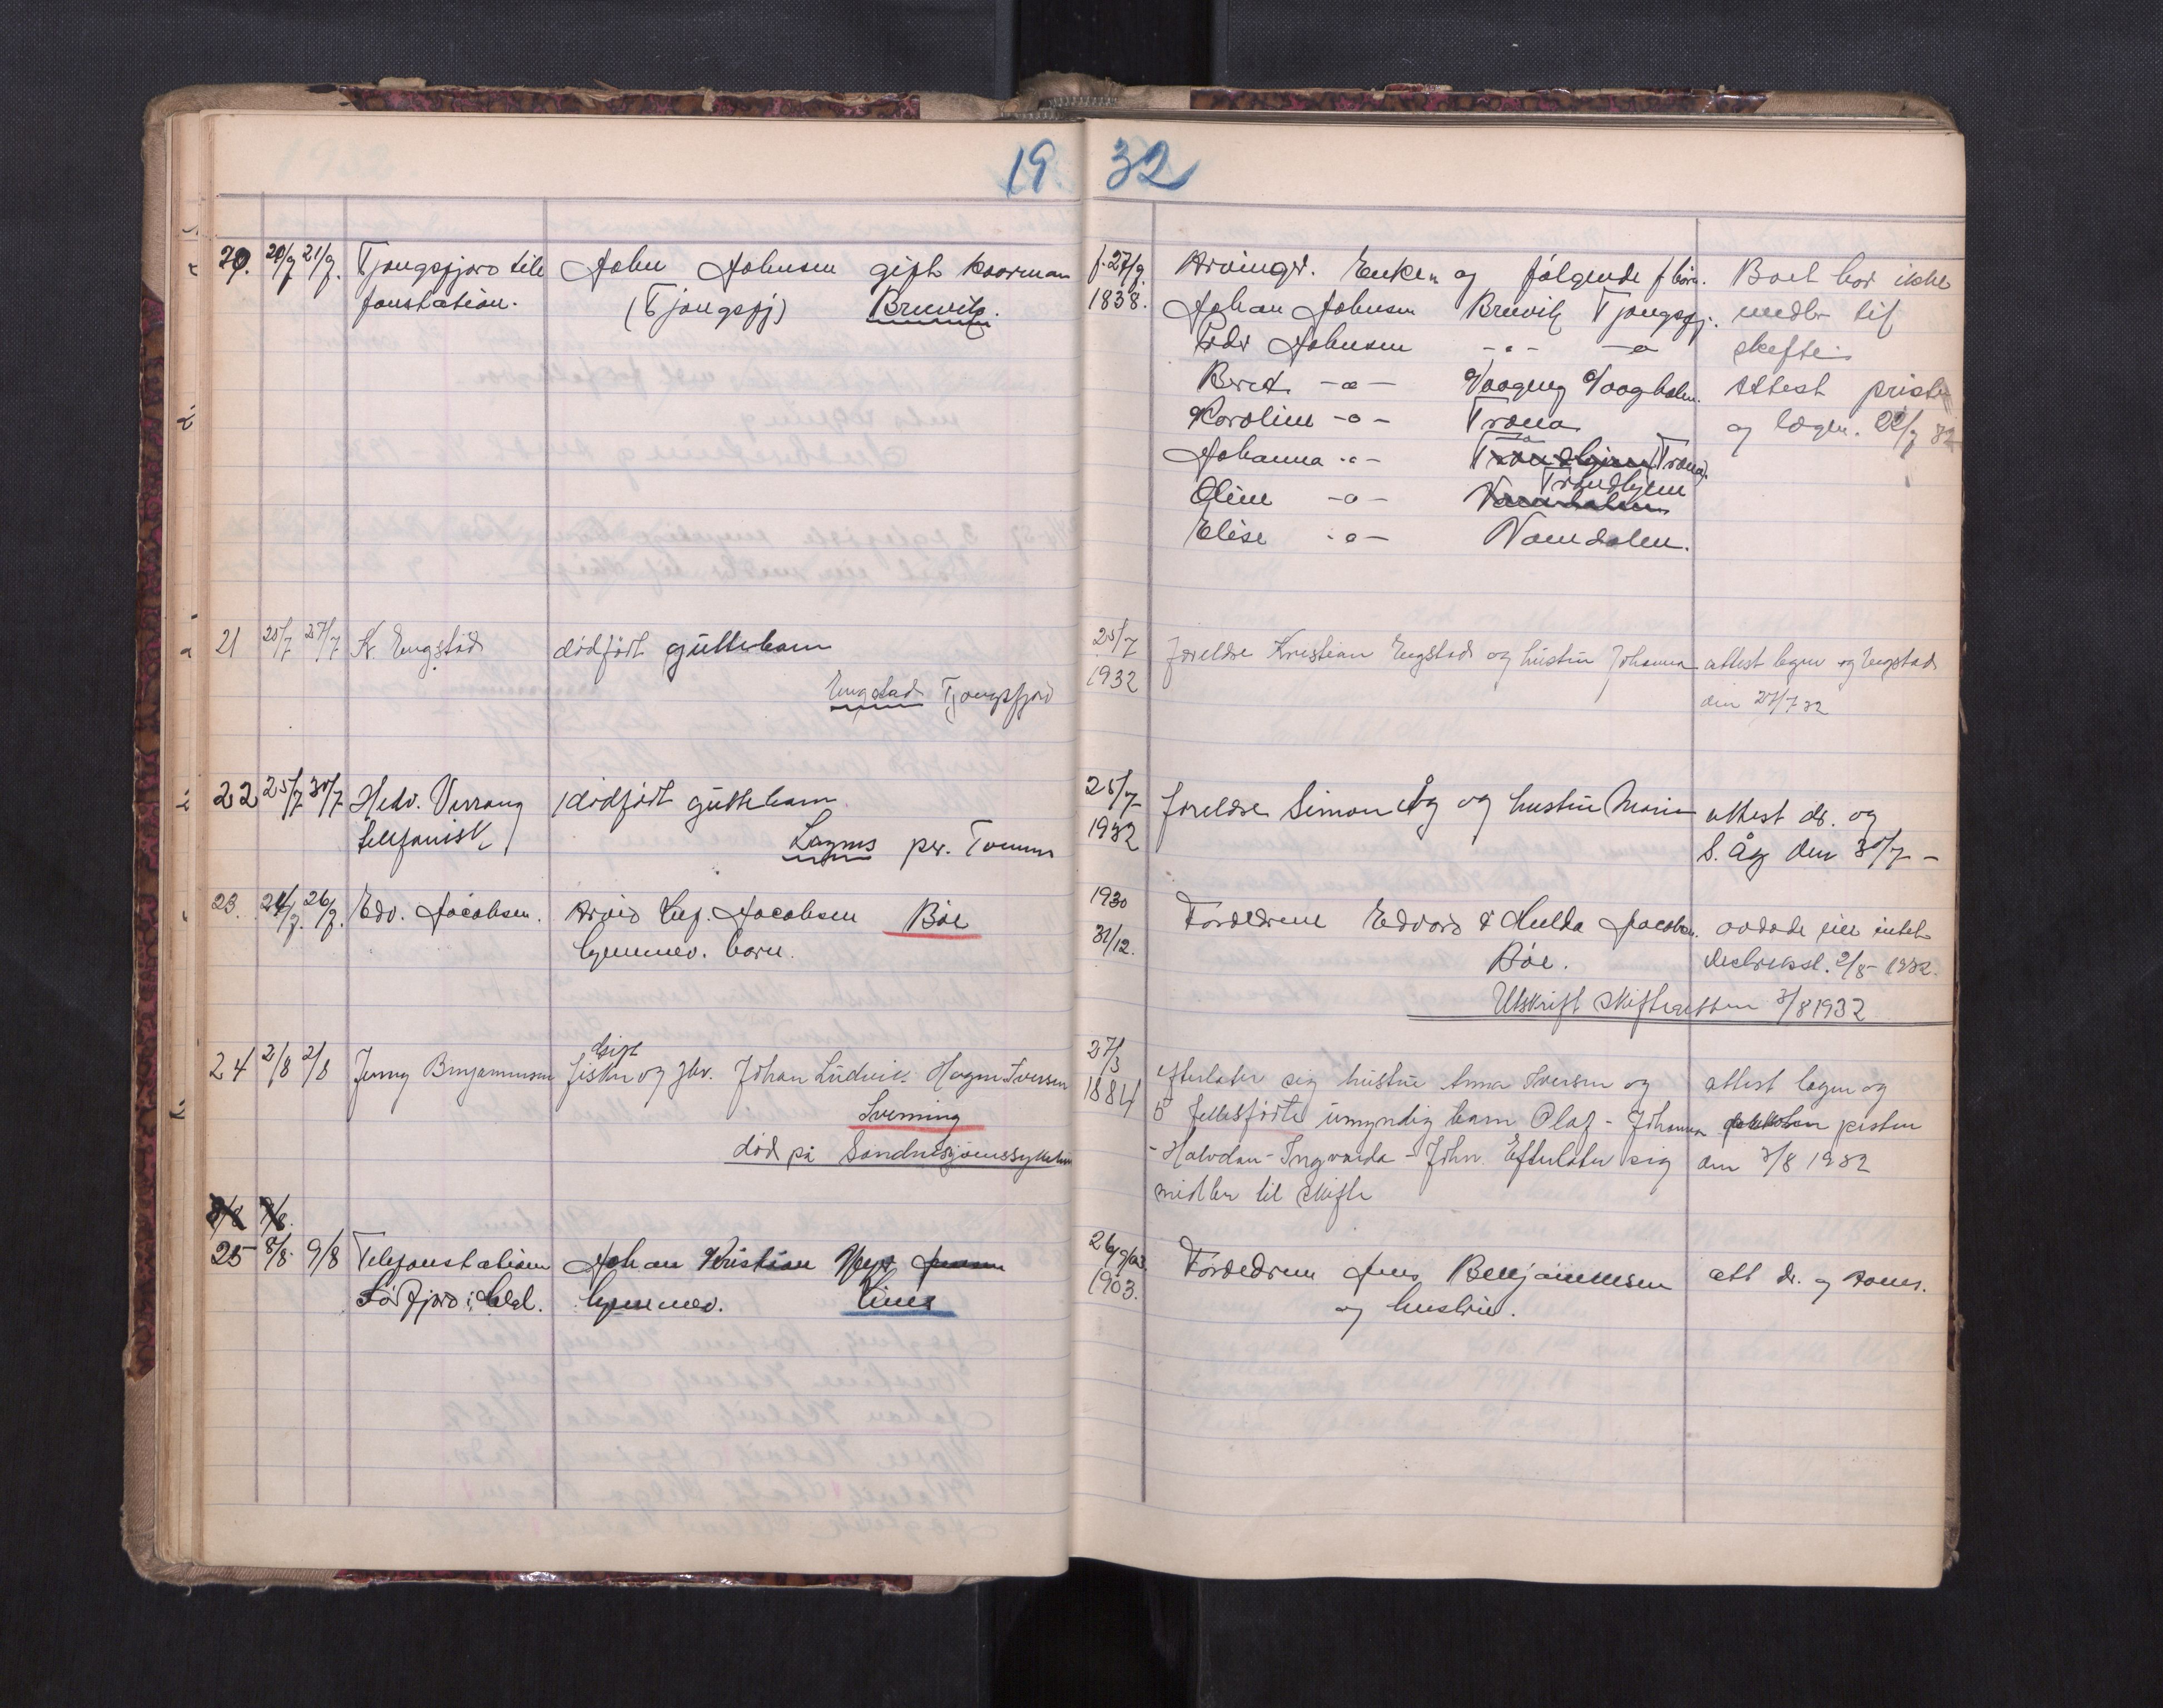 19 32
20. 20/7 21/7. Tjongsfjord tele John Johnsen gift kaarman f. 27/9. Arvinger. Enken og følgende f børn. Boet har ikke
fonstation. (Tjongsfj) Breivik. 1838. Johan Johnsen Breivik Tjongsfj. midler til
Peder Johnsen -"- -"- skifte
Berit -"- Vaagholm. Attest prest
Karoline -"- Træna og lægen. 22/7 32
Johanna -"- Træna
Oline -"- Trondhjem
Elise -"- Namdalen.
21 25/7 27/7 K. Engstad dødfødt guttebarn 25/7 foreldre Kristian Engstad og hustru Johanna attest legen og Engstad
Engstad Tjongsfjord 1932 den 27/7 32
22 25/7 30/7 Hedv. Værang dødfødt guttebarn 25/7 foreldre Simon Åg og hustru Marie attest dr. og
telefonisk per. Tonnes 1932 S. Åg den 30/7 -
23. 24/7. 26/7. Edv. Jacobsen. Arvid Jacobsen Bøe 1930 Foreldrene Edvard & Hulda Jacobsen. avdøde eier intet
hjemmev. barn. 31/12. Bøe. 2/8 - 1932.
Utskrift skifteretten 3/8 1932
24 2/8 2/8 Jenny Benjaminsen gift fisker og gbr. Johan Ludvig Hagen Iversen 27/3 efterlater sig hustru Anna Iversen og attest legen og
Svenning 1884 5 fellesfødte umyndig barn Olaf - Johanna presten
død på Sandnessjøens sykehus - Halvdan - Ingvarda - John. Efterlater sig den 3/8 1932
midler til skifte
8/8 9/8.
25 8/8 9/8 Telefonstationen Johan Kristian 26/9 03. Foreldrene Jens Benjaminsen att dr. og
Sørfjord i hjemmev. 1903. og hustru.